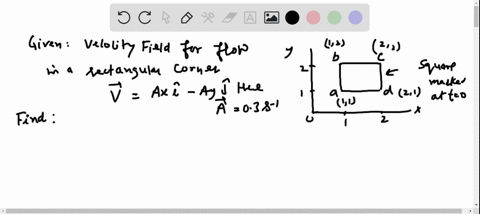 Given: Velocity Field for flow
in a rectangular corner
V = Axî - Ayĵ
A = 0.3 s-1
Find:
y
(1,2)
(2,2)
b
c
2
Square
marked
at t=0
1
a
d
(2,1)
(1,1)
0
1
2
x